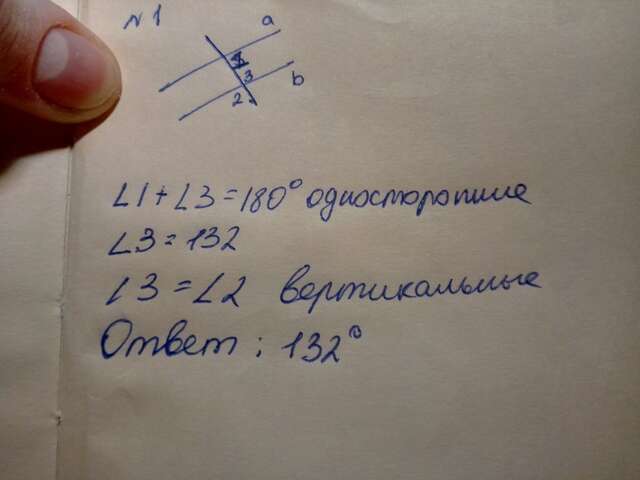 N1
a
3
b
2
∠1+∠3=180° односторонние
∠3=132
∠3=∠2 вертикальные
Ответ: 132°